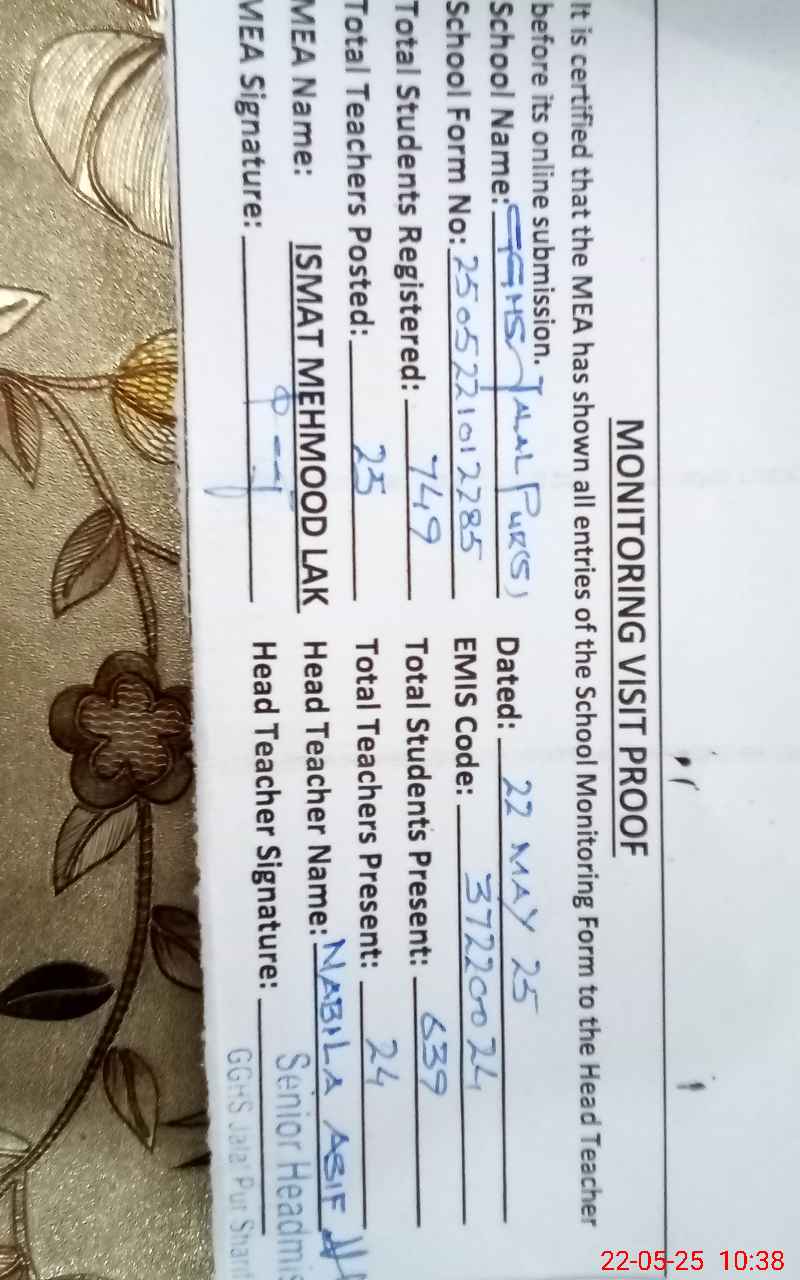 MONITORING VISIT PROOF
It is certified that the MEA has shown all entries of the School Monitoring Form to the Head Teacher
before its online submission.
School Name: GGHS Jalal Pur(S) Dated: 22 MAY 25
School Form No: 2505221012285 EMIS Code: 37220024
Total Students Registered: 749 Total Students Present: 639
Total Teachers Posted: 25 Total Teachers Present: 24
MEA Name: ISMAT MEHMOOD LAK Head Teacher Name: NABILA ASIF
MEA Signature: Head Teacher Signature:
Senior Headmis
GGHS Jalal Pur Sharif
22-05-25 10:38